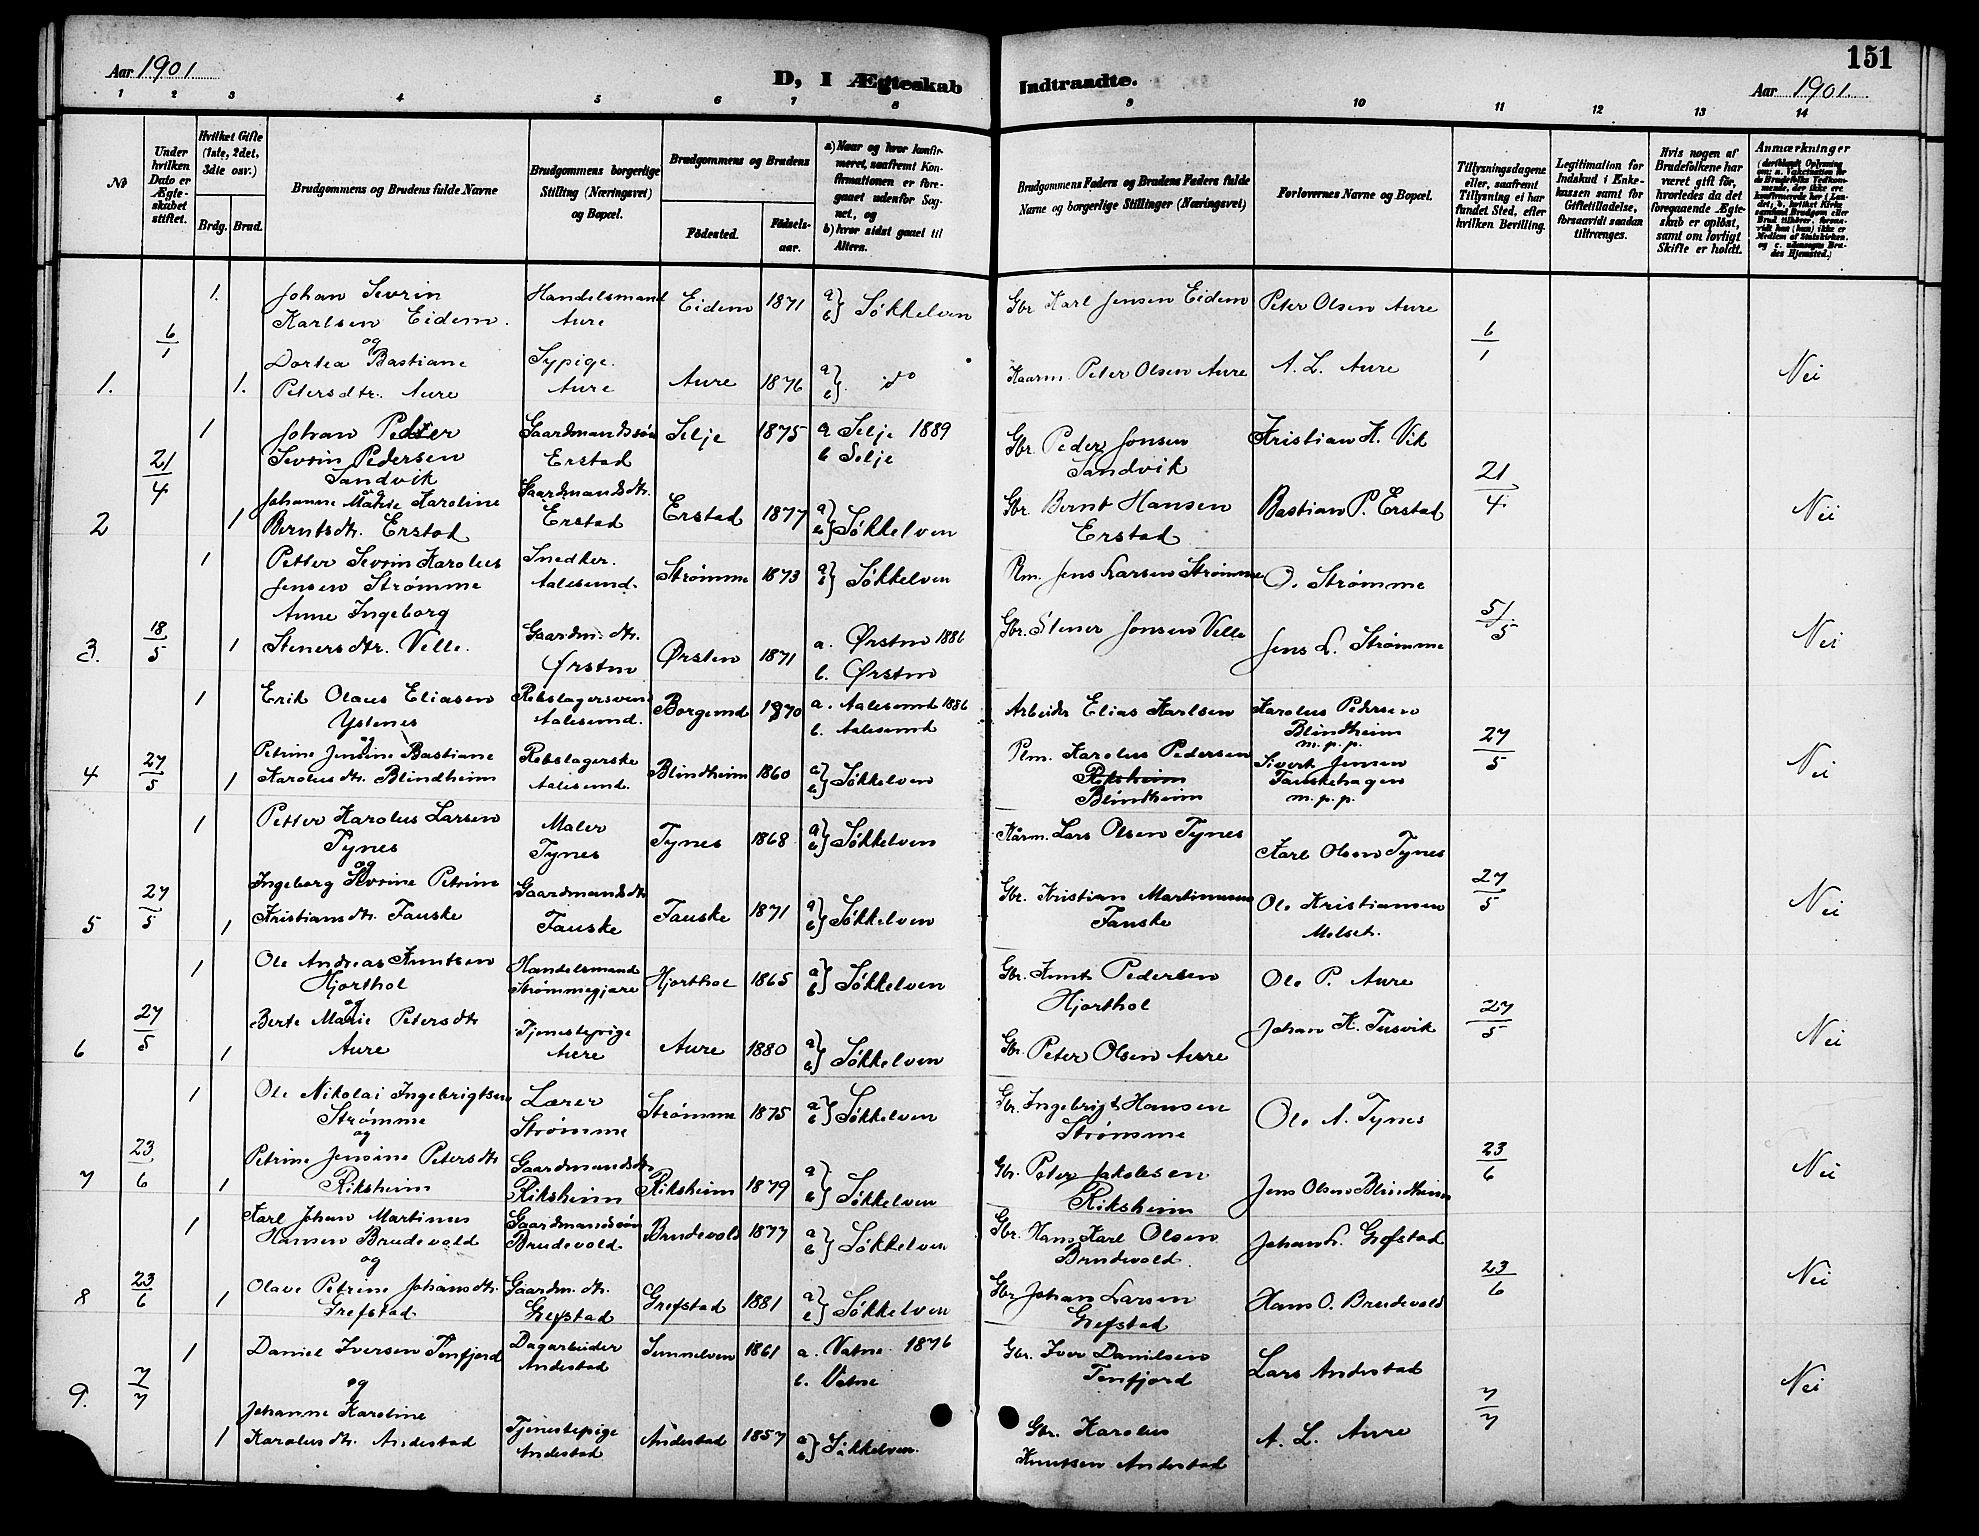 151
Aar 1901
D, I Ægteskab Indtraadte.
Aar 1901.
1 2 3 4 5 6 7 8 9 10 11 12 13 14
No
Under hvilken Dato er Ægteskabet stiftet.
Hvilket Gifte (1ste, 2det, 3die osv.)
Brdg. Brud.
Brudgommens og Brudens fulde Navne
Brudgommens borgerlige Stilling (Næringsvei) og Bopæl.
Brudgommens og Brudens
Fødested. Fødselsaar.
a) Naar og hvor konfirmeret, saafremt Konfirmationen er foregaaet udenfor Sognet, og
b) hvor sidst gaaet til Alters.
Brudgommens Faders og Brudens Faders fulde Navne og borgerlige Stillinger (Næringsvei)
Forlovernes Navne og Bopæl.
Tillysningsdagene eller, saafremt Tillysning ei har fundet Sted, efter hvilken Bevilling.
Legitimation for Indskud i Enkekassen samt for Giftetilladelse, forsaavidt saadan tiltrænges.
Hvis nogen af Brudefolkene har været gift før, hvorledes da det foregaaende Ægteskab er opløst, samt om lovligt Skifte er holdt.
Anmærkninger
1. 6/1
1. Johan Sevrin Karlsen Eidem. Handelsmand Aure Eidem 1871 a b} Søkkelven Gbr. Karl Jensen Eidem Peter Olsen Aure 6/1
og
1. Dortea Bastiane Petersdtr. Aure Sypige. Aure Aure 1876 a b} do Kaarm. Peter Olsen Aure A. L. Aure Nei
2 21/4
1 Johan Peder Sevrin Pedersen Sandvik Gaardmandssøn Erstad Selje 1875 a Selje 1889 b Selje Gbr. Peder Jonsen Sandvik Kristian K. Vik 21/4
og
1 Johanne Matde Karoline Berntsdtr. Erstad Gaardmandsdtr. Erstad Erstad 1877 a b} Søkkelven Gbr. Bernt Hansen Erstad Bastian P. Erstad Nei
3. 18/5
1 Petter Sevrin Karolus Jensen Strømme Snedker. Aalesund. Strømme 1873 a b} Søkkelven Plm. Jens Larsen Strømme O. Strømme 5/5
1 Anne Ingeborg Stenersdtr. Velle. Gaardm. dtr. Ørsten Ørsten 1871 a. Ørsten 1886 b. Ørsten Gbr. Stener Jonsen Velle Jens L. Strømme Nei
4 27/5
1 Erik Olaus Eliasen Ystenes Rebslagersvend Aalesund. Borgund 1870 a. Aalesund 1886 b. Aalesund Arbeider Elias Karlsen Karolus Pedersen Blindheim m.p.p. 27/5
og
1 Petrine Jensine Bastiane Karolusdtr. Blindheim Rebslagerske Aalesund. Blindheim 1860 a b} Søkkelven Plm. Karolus Pedersen Riksheim Blindheim Sivert Jensen Fauskehagen m.p.p. Nei
5 27/5
1 Petter Karolus Larsen Tynes Maler Tynes Tynes 1868 a b} Søkkelven Kårm. Lars Olsen Tynes Karl Olsen Tynes 27/5
og
1 Ingeborg Sevrine Petrine Kristiansdtr. Fauske Gaardmandsdtr Fauske Fauske 1871 a b} Søkkelven Gbr. Kristian Martinussen Fauske Ole Kristiansen Melset. Nei
6 27/5
1 Ole Andreas Knutsen Hjorthol Handelsmand Strømmegjære Hjorthol 1865 a b} Søkkelven Gbr. Knut Pedersen Hjorthol Ole P. Aure 27/5
og
1 Berte Marie Petersdtr Aure Tjenestepige Aure Aure 1880 a b} Søkkelven Gbr. Peter Olsen Aure Johan K. Tusvik Nei
7 23/6
1 Ole Nikolai Ingebrigtsen Strømme Lærer Strømme Strømme 1875 a b} Søkkelven Gbr. Ingebrigt Hansen Strømme Ole A. Tynes 23/6
og
1 Petrine Jensine Petersdtr Riksheim Gaardmandsdtr Riksheim Riksheim 1879 a b} Søkkelven Gbr. Peter Jakobsen Riksheim Jens Olsen Blindheim Nei
8 23/6
1 Karl Johan Martinus Hansen Brudevold Gaardmandssøn Brudevold Brudevold 1877 a b} Søkkelven Gbr. Hans Karl Olsen Brudevold. Johan L. Grefstad 23/6
og
1 Olave Petrine Johansdtr. Grefstad Gaardm. dtr. Grefstad Grefstad 1881 a b} Søkkelven Gbr Johan Larsen Grefstad Hans O. Brudevold Nei
9. 7/7
1 Daniel Iversen Tenfjord Dagarbeider Andestad Sunnelven 1861 a. Vatne 1876 b. Vatne Gbr. Iver Danielsen Tenfjord Lars Andestad 7/7
og
1 Johanne Karoline Karolusdtr. Andestad Tjenestepige Andestad Andestad 1857 a b} Søkkelven. Gbr. Karolus Knutsen Andestad A. L. Aure Nei